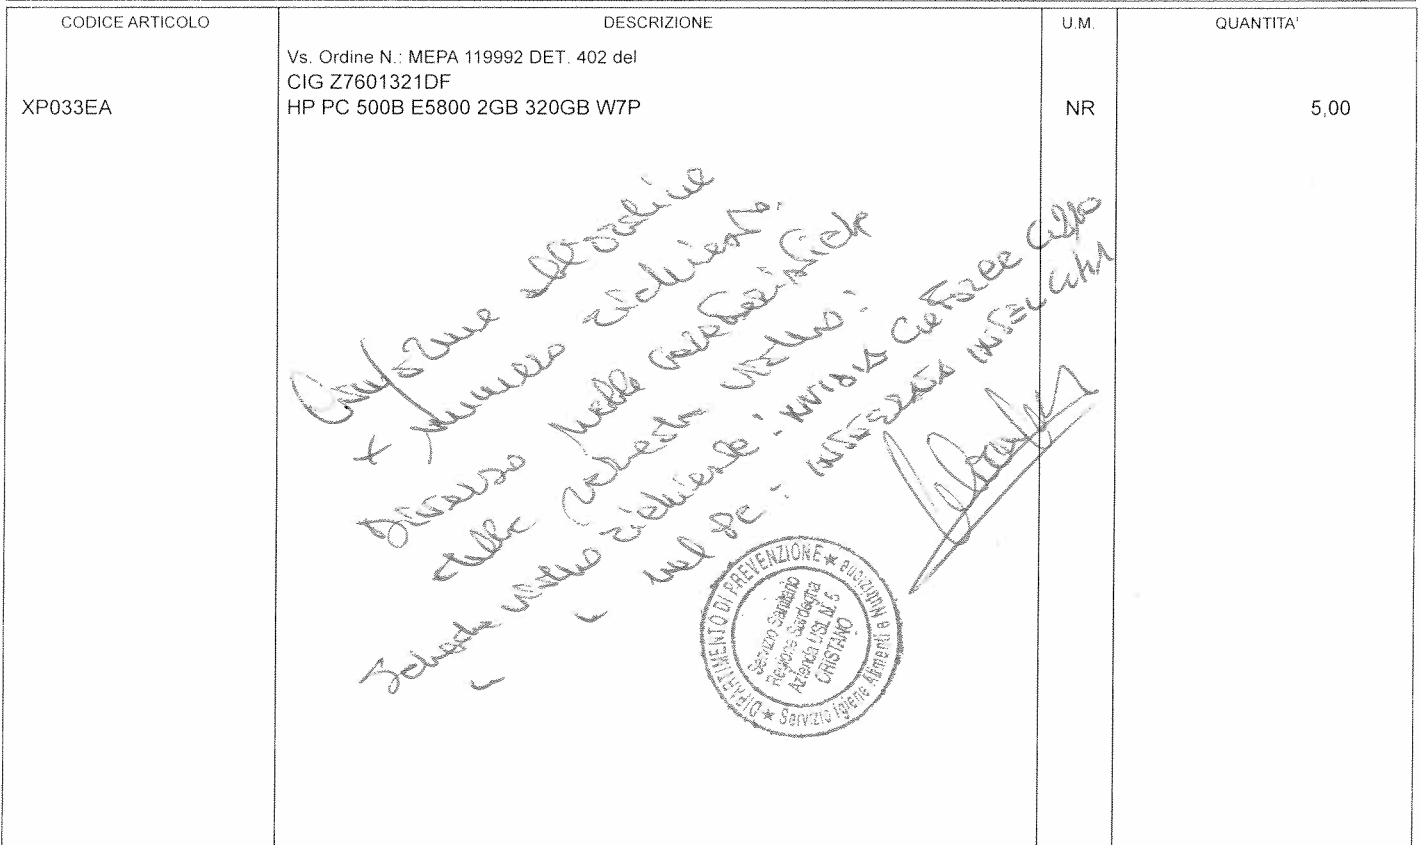 CODICE ARTICOLO DESCRIZIONE U.M. QUANTITA'
Vs. Ordine N.: MEPA 119992 DET. 402 del
CIG Z7601321DF
XP033EA HP PC 500B E5800 2GB 320GB W7P NR 5,00
Conforme all'ordine
x numero richiesto.
Diverso nelle caratteristiche
della scheda video:
Scheda video richiesta: NVIDIA GEFORCE G210
- nel PC: INTEGRATA INTEL GMA
DIPARTIMENTO DI PREVENZIONE ★ Servizio Igiene Alimenti e Nutrizione ★
Servizio Sanitario
Regione Sardegna
Azienda USL N. 5
ORISTANO